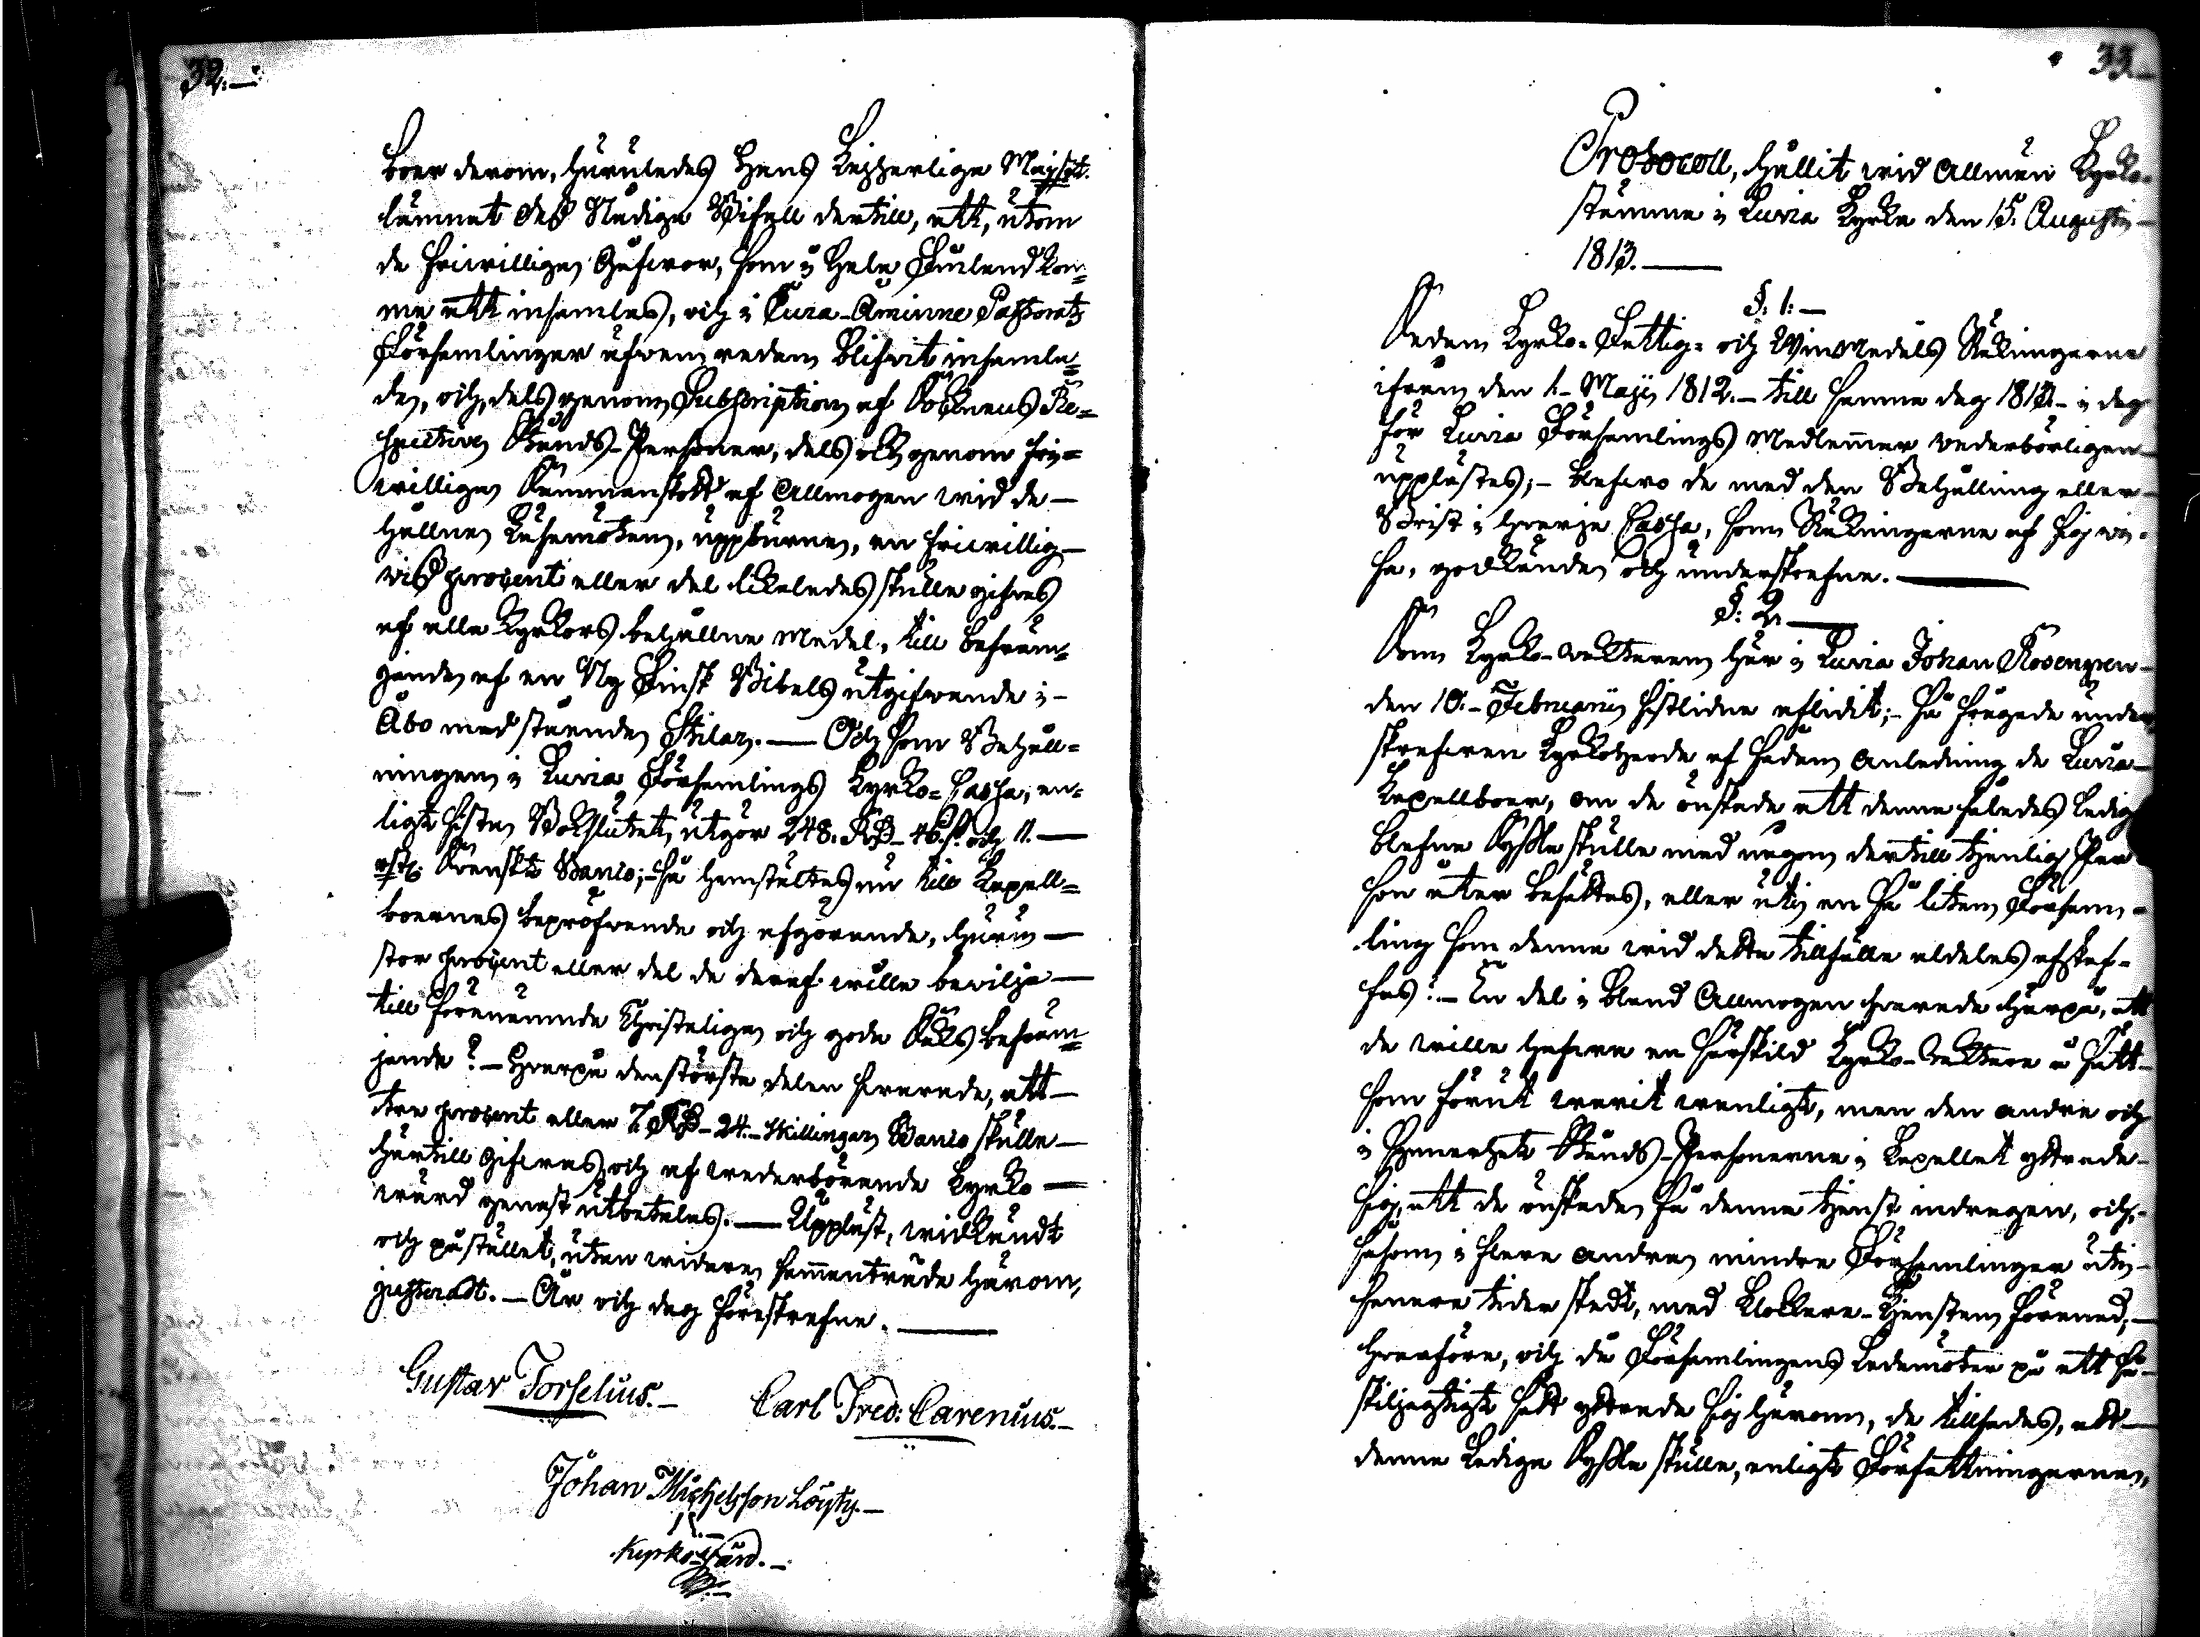 32.
boer derom, huruledes Hans Kejserliga Majestt.
lemnat dess Nådiga Bifall dertill, att, utom
de friwilliga Gåfwor, som i hela Finland kom=
ma att insamlas, och i Eura-Åminne Pastorats
Församlingar äfwen redan blifvit insamla=
de, och, dels genom Subscription af Socknens Re=
spective Stånds-Personer, dels ock genom fri=
willigen Sammanskott af Allmogen wid de
hållne Läsemöten, uppburne, en friwillig
wiss procent eller del likaledes skulle gifvas
af alla Kyrkors behållne medel, till befräm=
jande af en Ny Finsk Bibels utgifwande i
Åbo med stående Stilar. — Och som Behåll=
ningen i Luvia Församlings Kyrko=Cassa, en=
ligt sista Bokslutet, utgör 248. RD 46 s. och 11.
rst. Svenskt Banco; så hemstältes nu till Kapell=
boernes bepröfwande och afgörande, huru
stor procent eller del de deraf wille bevilja
till förenämnde Christeliga och goda Saks befräm=
jande? — Hvarpå den största delen svarade, att
tre procent eller 7. RD 24. skillingar Banco skulle
härtill gifvas, och af wederbörande Kyrko
wärd genast utbetalas. — Uppläst, widkändt
och påstållet, utan widare sammanträde härom,
justeradt. — År och dag föreskrefne.
Gustav Torselius.
Carl Fred: Carenius.
Johan Michelsson Löysty.
Kyrkowärd.
33.
Protocoll, hållit wid Allmän Kyrko-
stämma i Luvia Kyrka den 15. Augusti
1813.
§. 1.
Sedan Kyrko- Fattig- och Winmedels Räkningarne
ifrån den 1. Maji 1812. till samma dag 1813. i dag
för Luvia Församlings Medlemmar wederbörligen
upplästes; blefwo de med den Behållning eller
Brist i hvarje Cassa, som Räkningarne af sig wi-
sa, godkände och underskrefne.
§. 2.
Som Kyrko-wäktaren här i Luvia Johan Rosengren
den 10. Februarii sistlidne aflidit; så frågade under
skrefwen Kyrkoherde af sådan anledning de Luvia
Kapellboer, om de önskade att denna således ledig
blefne Syssla skulle med någon dertill tjenlig Per
son åter besättas, eller uti en så liten Försam-
ling som denna wid detta tillfälle aldeles afskaf-
fas? — En del i bland Allmogen svarade härpå, att
de wille hafwa en särskild Kyrko-wäktare å sätt
som förut warit wanligt, men den andra och
i synnerhet Stånds-Personerne i Kapellet yttrade
sig, att de önskade få denna tjenst indragen, och,
såsom i flera andra mindre Församlingar uti
senare tider skedt, med Klockare-tjensten förenad;
hvarföre, och då Församlingens Ledamöter på ett så
skiljagtigt sätt yttrade sig härom, de tillsades, att
denna Lediga Syssla skulle, enligt Författningarne,